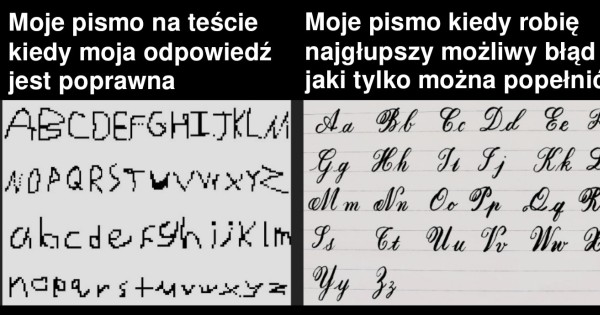 Moje pismo na teście
kiedy moja odpowiedź
jest poprawna
Moje pismo kiedy robię
najgłupszy możliwy błąd
jaki tylko można popełnić
ABCDEFGHIJKLM
NOPQRSTUVWXYZ
abcdefghijklm
nopqrstuvwxyz
Aa Bb Cc Dd Ee
Gg Hh Ii Jj Kk
Mm Nn Oo Pp Qq
Ss Tt Uu Vv Ww
Yy Zz